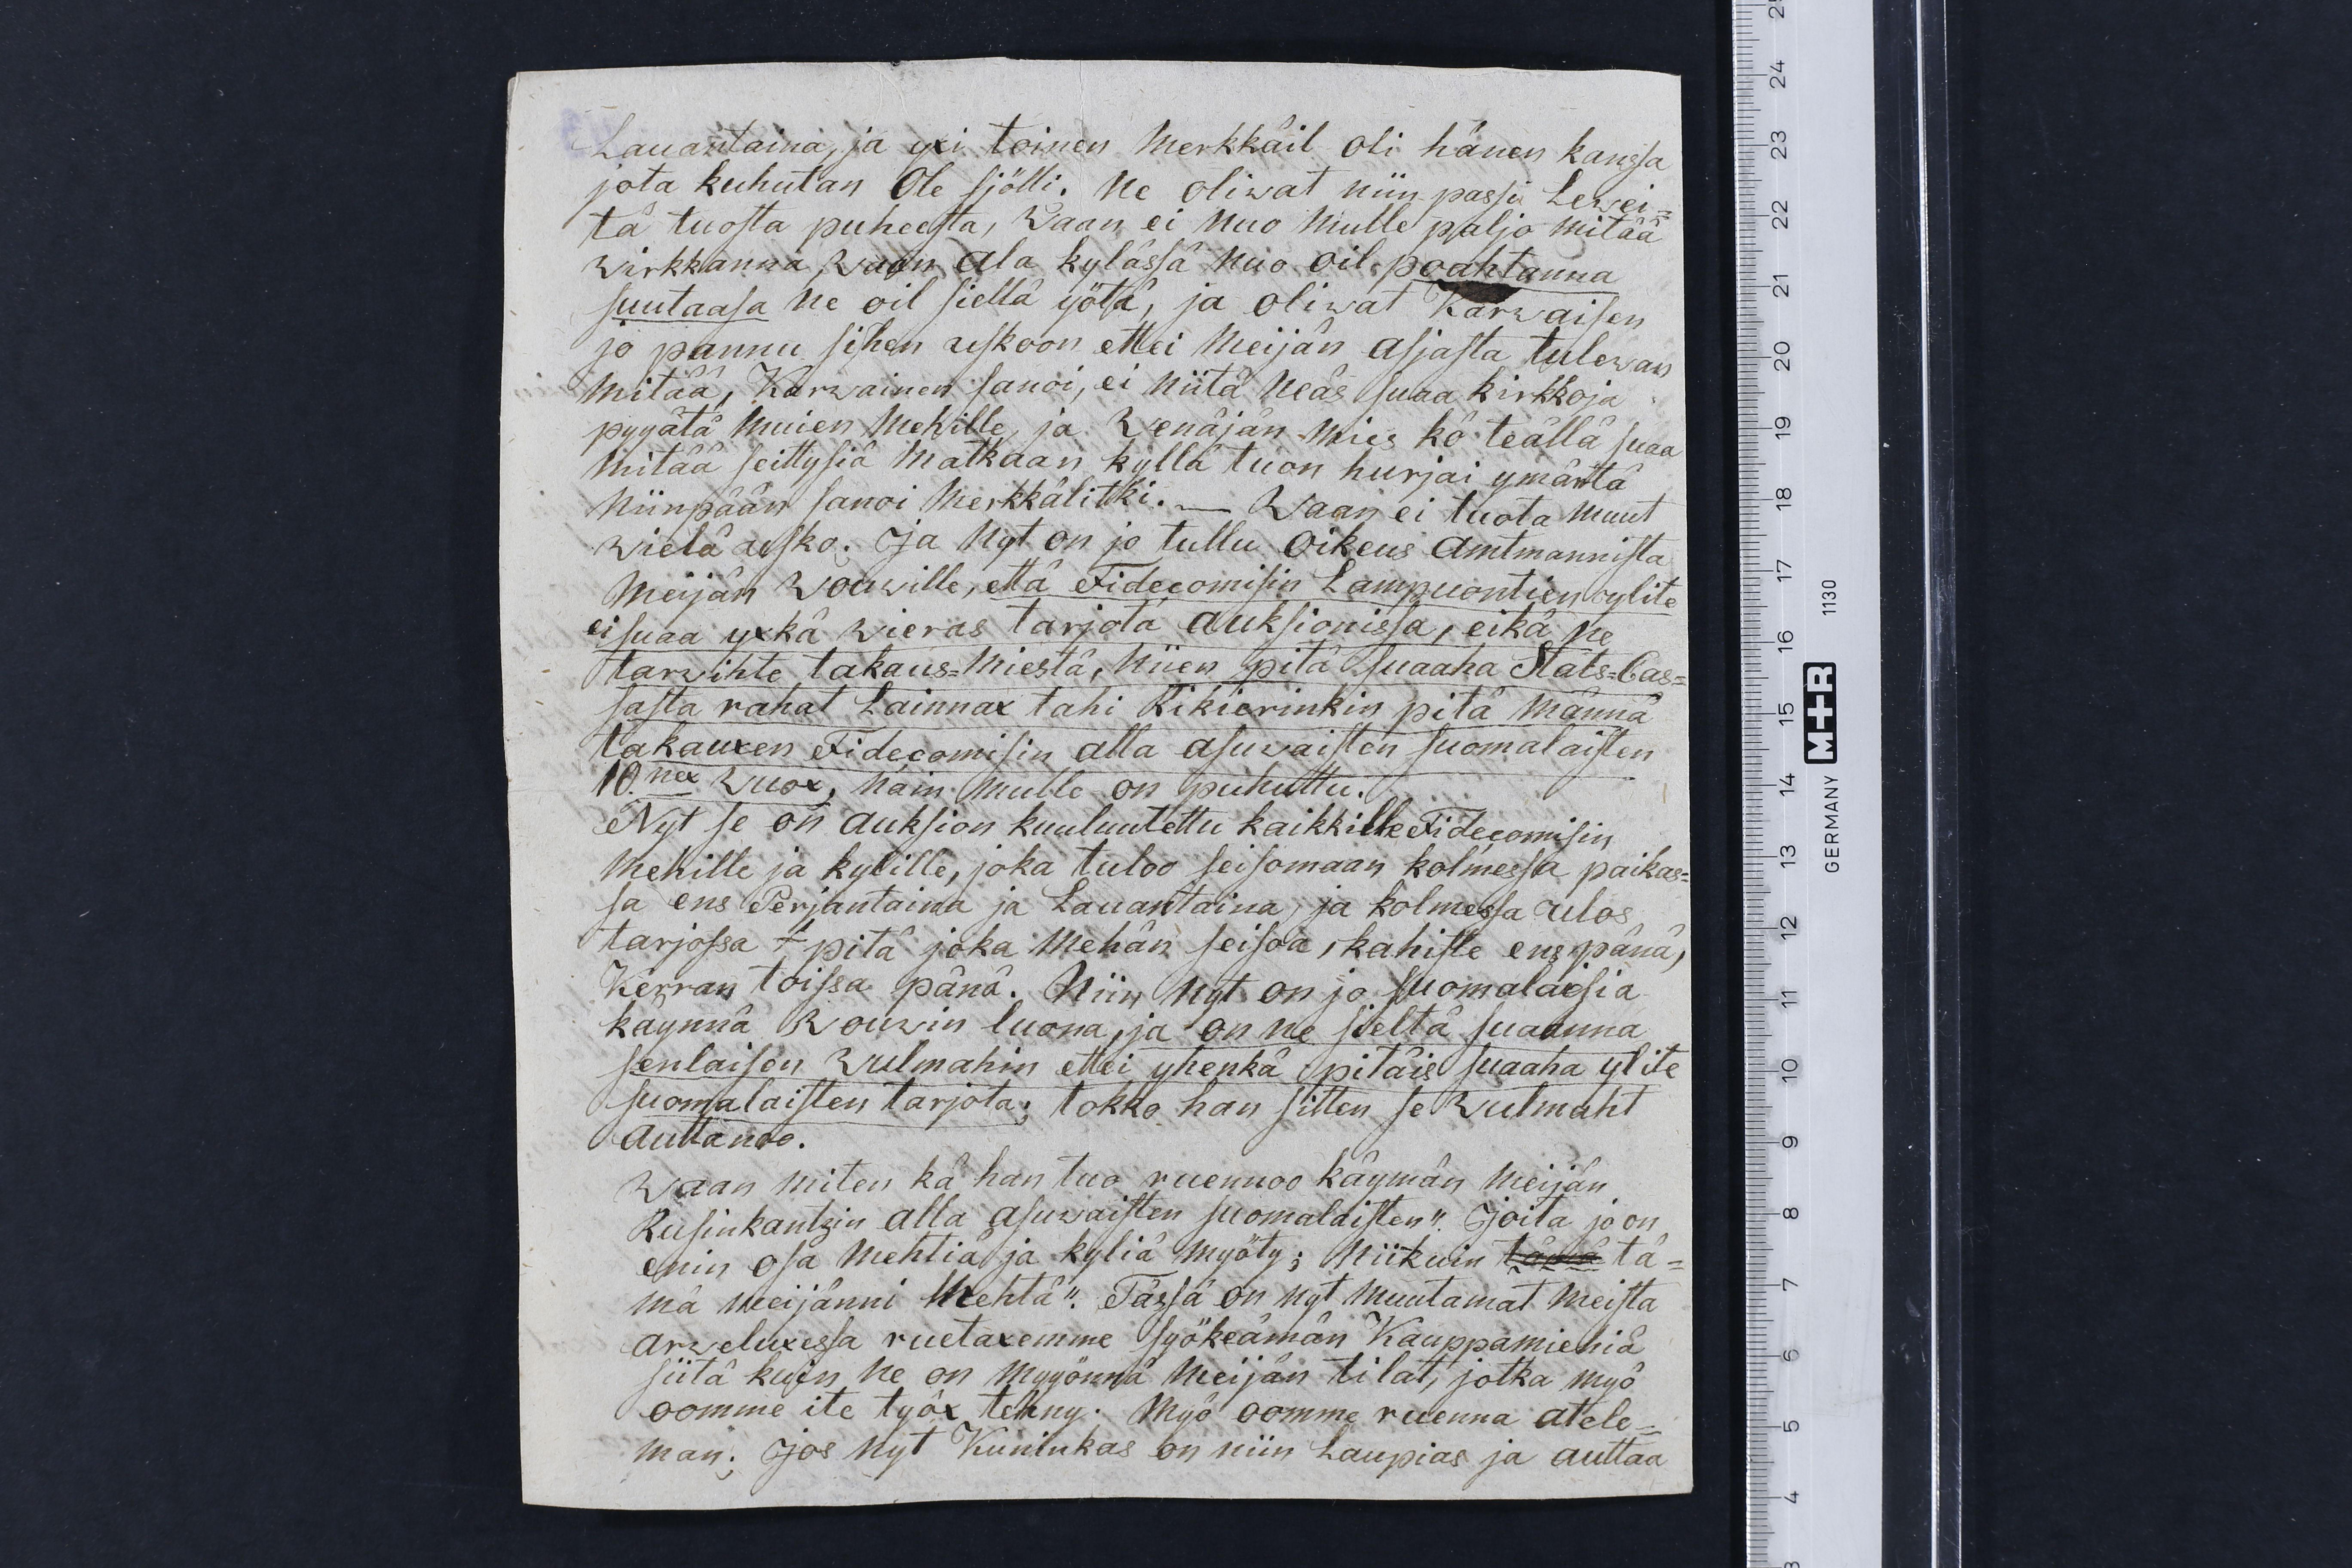 Lauantaina, ja yxi toinen Merkkäil oli hänen kanssa
jota kuhutan Ole Sjölli. Ne oliwat niin passu Lewei=
tä tuosta puheesta, Waan ei nuo Mulle paljo mitää
wirkkanna Waan Ala kylässä nuo oil poahtanna
suutaasa ne oil siellä yötä, ja oliwat Karwaisen
jo pannu siihen uskoon ettei Meijän asjasta tulewan
Mitää, Karwainen sanoi, ei niitä neäs suaa kirkkoja
pyyätä Muien Mehille, ja Wenäjän Mies kö teällä suaa
Mitää seittysiä Matkaan kyllä tuon hurjai ymärtä
Niinpään sanoi Merkkälitki. — Waan ei tuota Muut
wielä usko. Ja Nyt on jo tullu Oikeus Amtmannista
Meijän Wouwille, että Fidecomisin Lampuontien ylite
ei suaa yxkä wieras tarjota Auksionissa, eikä ne
tarwihte takaus=Miestä, Niien pitä suaaha Stats=Cas=
sasta rahat Lainnax tahi Rikierinkin pitä männä
takauxen Fidecomisin alla asuwaisten suomalaisten
10.nex Wuox, näin Mulle on puhuttu.
Nyt se on Auksion kuuluutettu kaikkille Fidecomisin
Mehille ja kylille, joka tuloo seisomaan kolmessa paikas=
sa ens Perjantaina ja Lauantaina, ja kolmessa ulos
tarjossa + pitä joka Mehän seisoa, kahiste ens pänä,
Kerran toissa pänä. Niin Nyt on jo suomalaisia
käynnä Wouwin luona, ja on ne sieltä suaanna
senlaisen Wulmahin ettei yhenkä pitäis suaaha ylite
suomalaisten tarjota; tokko han sitten se Wulmaht
Auttanoo.
Waan miten kä han tuo ruennoo käymän Meijän
Rusinkantzin alla asuwaisten suomalaisten". Joita jo on
enin osa Mehtiä ja kyliä myöty; Niikuin tämä tä=
mä meijänni Mehtä". Tässä on nyt Muutamat Meista
Arweluxessa ruetaxemme syökeämän Kauppamiehiä
siitä kuin ne on Myyönnä Meijän tilat, jotka myö
oomme ite työx tehny. Myö oomme ruenna atele=
man; Jos nyt Kuninkas on niin Laupias ja auttaa